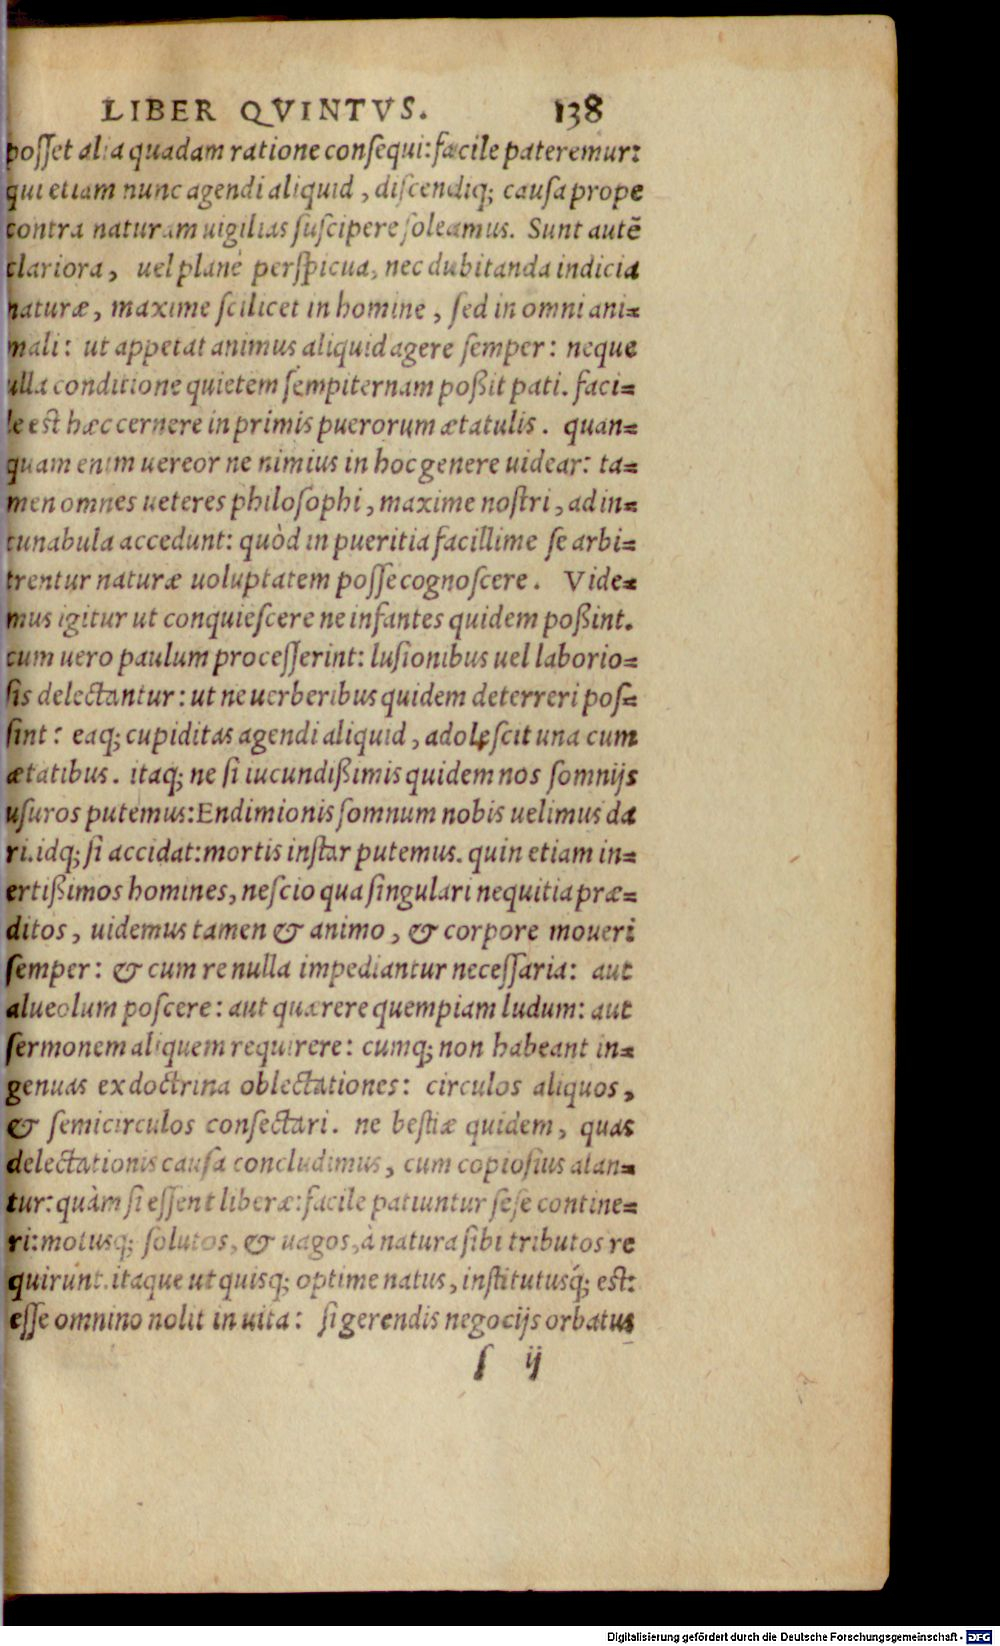 LIBER QVINTVS. 138
posset alia quadam ratione consequi: facile pateremur:
qui etiam nunc agendi aliquid, discendiq; causa prope
contra naturam uigilias suscipere soleamus. Sunt autē
clariora, uel planè perspicua, nec dubitanda indicia
naturæ, maxime scilicet in homine, sed in omni ani-
mali: ut appetat animus aliquid agere semper: neque
ulla conditione quietem sempiternam poßit pati. faci-
le est hæc cernere in primis puerorum ætatulis. quan-
quam enim uereor ne nimius in hoc genere uidear: ta-
men omnes ueteres philosophi, maxime nostri, ad in-
cunabula accedunt: quòd in pueritia facillime se arbi-
trentur naturæ uoluptatem posse cognoscere. Vide-
mus igitur ut conquiescere ne infantes quidem poßint.
cum uero paulum processerint: lusionibus uel laborio-
sis delectantur: ut ne uerberibus quidem deterreri pos-
sint: eaq; cupiditas agendi aliquid, adolescit una cum
ætatibus. itaq; ne si iucundißimis quidem nos somnijs
usuros putemus: Endimionis somnum nobis uelimus da
ri. idq; si accidat: mortis instar putemus. quin etiam in-
ertißimos homines, nescio qua singulari nequitia præ-
ditos, uidemus tamen & animo, & corpore moueri
semper: & cum re nulla impediantur necessaria: aut
alueolum poscere: aut quærere quempiam ludum: aut
sermonem aliquem requirere: cumq; non habeant in-
genuas ex doctrina oblectationes: circulos aliquos,
& semicirculos consectari. ne bestiæ quidem, quas
delectationis causa concludimus, cum copiosius alan-
tur: quàm si essent liberæ: facile patiuntur sese contine-
ri: motusq; solutos, & uagos, à natura sibi tributos re
quirunt. itaque ut quisq; optime natus, institutusq́; est:
esse omnino nolit in uita: si gerendis negocijs orbatus
s ij
Digitalisierung gefördert durch die Deutsche Forschungsgemeinschaft - DFG